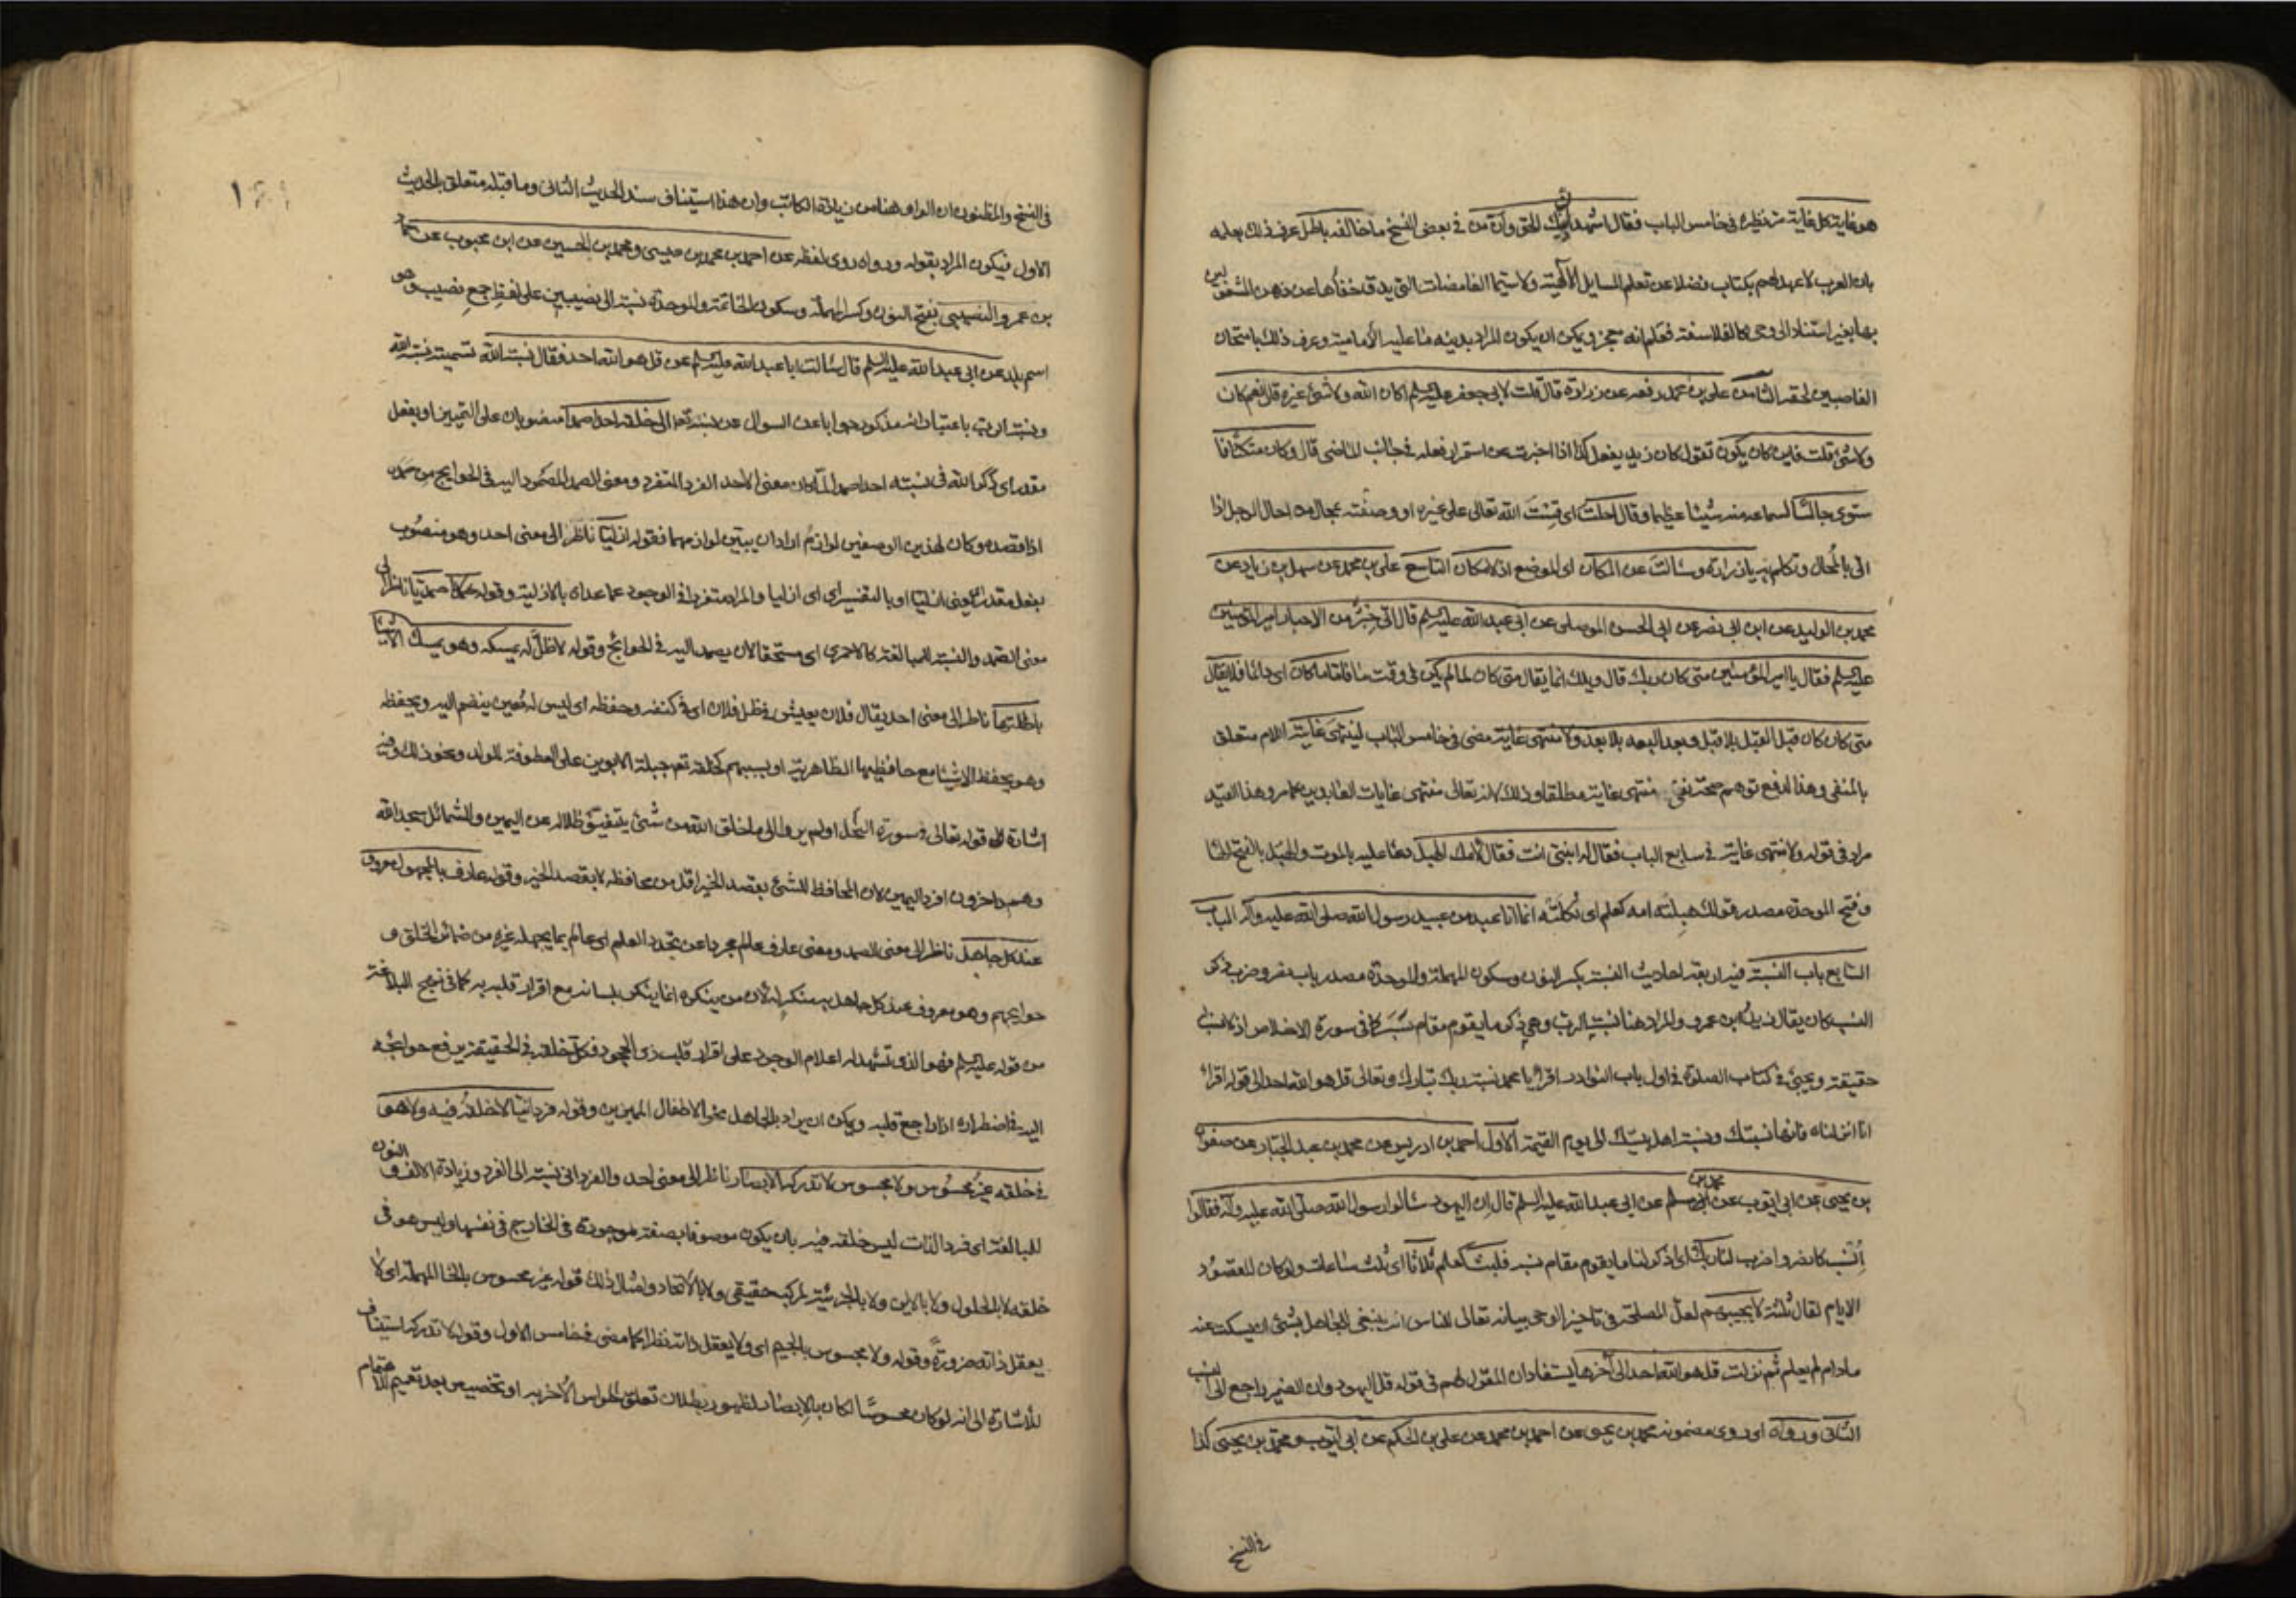 هو غاية كل غاية مر نظيره في خامس الباب فقال اشهد ان دينك الحق وان من في بعض النسخ ما خالفه باطل عرف ذلك بعلمه
بان العرب لا عهد لهم بكتاب فضلا عن تعلم المسايل الالهية ولا سيما الغامضات التي يدق خفاؤها عن ذهن المشغولين
بها بغير استناد الى وحي كالفلاسفة فعلم انه معجز ويمكن ان يكون المراد بدينه ما عليه الامامية وعرف ذلك بامتحان
الغاصبين لحقه الثامن علي بن محمد رفعه عن زرارة قال قلت لابي جعفر عليه السلم اكان الله ولا شئ غيره قال نعم كان
ولا شئ قلت فاين كان يكون تقول كان زيد يفعل كذا اذا اخبرت عن استمرار فعله في جانب الماضي قال وكان متكئا فا
ستوى جالسا لسماعه منه شيئا عظيما وقال احلت اي قست الله تعالى على غيره او وصفته بمحال من احال الرجل اذا
اتى بالمحال وتكلم به يا زرارة وسالت عن المكان اي الموضع اذ لا مكان التاسع علي بن محمد عن سهل بن زياد عن
محمد بن الوليد عن ابن ابي نصر عن ابي الحسن الموصلي عن ابي عبد الله عليه السلم قال اتى حبر من الاحبار امير المؤمنين
عليه السلم فقال يا امير المؤمنين متى كان ربك قال ويلك انما يقال متى كان لما لم يكن في وقت ما فاما ما كان اي دائما فلا يقال
متى كان كان قبل القبل بلا قبل وبعد البعد بلا بعد ولا منتهى غاية مضى في خامس الباب لينتهى غايته اللام متعلق
بالمنفي وهذا لدفع توهم صحة نفي منتهى غاية مطلقا وذلك لانه تعالى منتهى غايات العابدين كما مر وهذا القيد
مراد في قوله ولا منتهى غاية في سابع الباب فقال له انبي انت فقال لامك الهبل دعا عليه بالموت والهبل بالفتح الها
وفتح الموحدة مصدر قولك هبلته امه كعلم اي ثكلته انما انا عبد من عبيد رسول الله صلى الله عليه وآله الباب
السابع باب النسبة فيه اربعة احاديث النسبة بكسر النون وسكون المهملة والموحدة مصدر باب نصر وضرب ذكر
النسب كان يقال زيد ابن عمرو والمراد هنا نسبة الرب وهي ذكر ما يقوم مقام نسب كما في سورة الاخلاص اذ لا نسب له
حقيقة ويجئ في كتاب الصلوة في اول باب النوادر اقرا يا محمد نسبة ربك تبارك وتعالى قل هو الله احد الى قوله اقرا
انا انزلناه فانها نسبتك ونسبة اهل بيتك الى يوم القيمة الاول احمد بن ادريس عن محمد بن عبد الجبار عن صفوان
بن يحيى عن ابي ايوب عن محمد بن مسلم عن ابي عبد الله عليه السلم قال ان اليهود سالوا رسول الله صلى الله عليه وآله فقالوا
انسب كانصر واضرب لنا ربك اي اذكر لنا ما يقوم مقام نسبه فلبث كعلم ثلاثا اي ثلث ساعات ولو كان المقصود
الايام لقال ثلثة لا يجيبهم لعل المصلحة في تاخير الوحي بيانه تعالى للناس انه ينبغي للجاهل بشئ ان يسكت عنه
ما دام لم يعلم ثم نزلت قل هو الله احد الى آخرها يستفاد ان المقول لهم في قوله قل اليهود وان الضمير راجع الى النسب
الثاني ورواه اي روى مضمونه محمد بن يحيى عن احمد بن محمد عن علي بن الحكم عن ابي ايوب ومحمد بن يحيى كذا
في النسخ
في النسخ والمظنون ان الواو هنا من زيادة الكاتب وان هذا استيناف سند الحديث الثاني وما قبله متعلق بالحديث
الاول فيكون المراد بقوله ورواه روى لفظه عن احمد بن محمد بن عيسى ومحمد بن الحسين عن ابن محبوب عن حماد
بن عمرو النصيبي بفتح النون وكسر المهملة وسكون الخاتمة والموحدة نسبة الى نصيبين على لفظ جمع نصيب وهو
اسم بلد عن ابي عبد الله عليه السلم قال سالت ابا عبد الله عليه السلم عن قل هو الله احد فقال نسبة الله تسميته نسبة الله
ونسبة الرب باعتبار انه مذكور جوابا عن السوال عن نسبته تعالى الى خلقه احدا صمدا منصوبان على التمييز او بفعل
مقدر اي ذكر الله في نسبته احدا صمدا لما كان معنى الاحد الفرد المتفرد ومعنى الصمد المصمود اليه في الحوايج من صمده
اذا قصده وكان لهذين الوصفين لوازم اراد ان يبين لوازمهما فقوله ازليا ناظر الى معنى احد وهو منصوب
بفعل مقدر اي ازليا او بالتفسير اي ازليا والمراد متفردا في الوجود عما عداه بالازلية وقوله صمديا ناظر الى
معنى الصمد والنسبة للمبالغة كالاحمري اي مستحقا لان يصمد اليه في الحوائج وقوله لا ظل له يمسكه وهو يمسك الاشياء
باظلتها ناظر الى معنى احد يقال فلان يعيش في ظل فلان اي في كنفه وحفظه اي ليس له معين ينضم اليه ويحفظه
وهو يحفظ الاشياء مع حافظيها الظاهرية او بسببهم كخلقه تعالى جبلة الابوين على العطوفة للولد ونحو ذلك وفيه
اشارة الى قوله تعالى في سورة النحل اولم يروا الى ما خلق الله من شئ يتفيؤ ظلاله عن اليمين والشمائل سجدا لله
وهم داخرون افرد اليمين لان المحافظ للشئ بقصد الخير اقل من محافظه لا بقصد الخير وقوله عارف بالمجهول معروف
عند كل جاهل ناظر الى معنى الصمد ومعنى عارف عالم مجردا عن تجدد العلم اي عالم بما يجهله غيره من ضمائر الخلق و
حوايجهم وهو معروف عند كل جاهل به منكر له لان من ينكره انما ينكر بلسانه مع اقرار قلبه به كما في نهج البلاغة
من قوله عليه السلم فهو الذي تشهد له اعلام الوجود على اقرار قلب ذي الجحود فكل خلقه في الحقيقة يرفع حوايجه
اليه في اضطراره اذا راجع قلبه ويمكن ان يراد بالجاهل نحو الاطفال المميزين وقوله فردانيا لا خلقه فيه ولا هو
في خلقه غير محسوس ولا مجسوس لا تدركه الابصار ناظر الى معنى احد والفرداني نسبة الى الفرد وزيادة الالف والنون
للمبالغة اي فرد الذات ليس خلقه فيه بان يكون موصوفا بصفة موجودة في الخارج في نفسها وليس هو في
خلقه لا بالحلول ولا بالاين ولا بالجزئية لمركب حقيقي ولا بالاتحاد وامثال ذلك قوله غير محسوس بالحا المهملة اي لا
يعقل ذاته ضرورة وقوله ولا مجسوس بالجيم اي ولا يعقل ذاته نظرا كما مضى في خامس الاول وقوله لا تدركه استيناف
للاشارة الى انه لو كان محسوسا لكان بالابصار لظهور بطلان تعلق الحواس الاخر به او تخصيص بعد تعميم للاهتمام